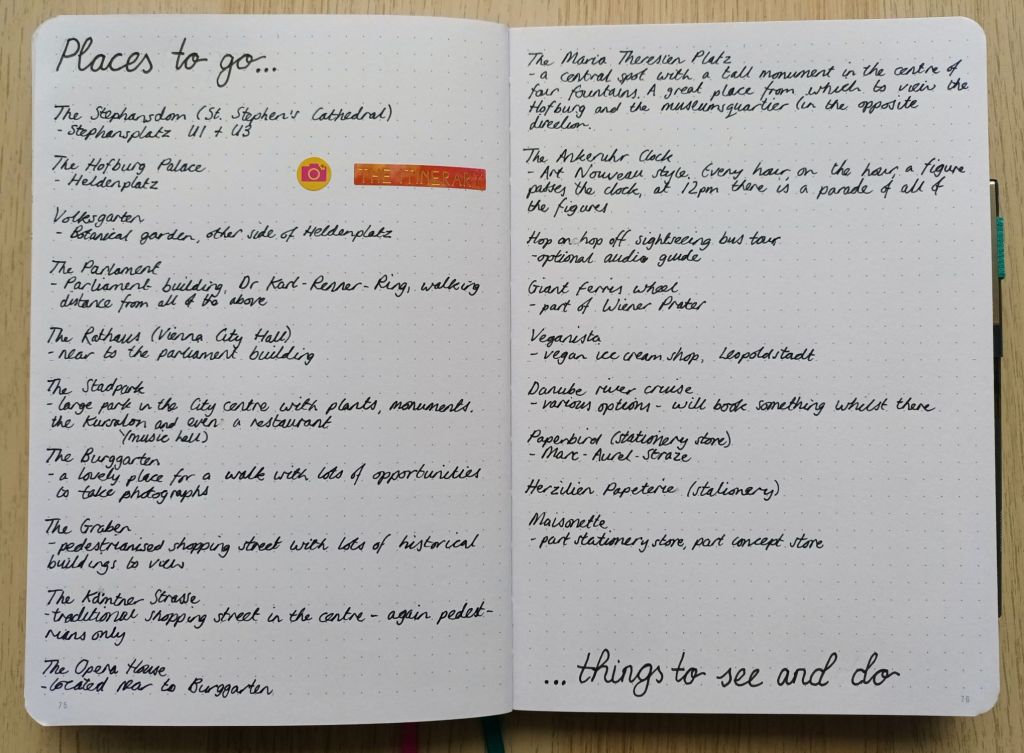 Places to go...
The Stephansdom (St. Stephen's Cathedral)
- Stephansplatz U1 + U3
The Hofburg Palace
- Heldenplatz
THE ITINERARY
Volksgarten
- Botanical garden, other side of Heldenplatz
The Parlament
- Parliament building, Dr Karl-Renner-Ring, walking
distance from all of the above
The Rathaus (Vienna City Hall)
- near to the parliament building
The Stadpark
- large park in the City centre with plants, monuments.
the Kursalon and even a restaurant
(music hall)
The Burggarten
- a lovely place for a walk with lots of opportunities
to take photographs
The Graben
- pedestrianised shopping street with lots of historical
buildings to view
The Kärntner Strasse
- traditional shopping street in the centre - again pedest-
rians only
The Opera House
- located near to Burggarten
75
The Maria Theresien Platz
- a central spot with a tall monument in the centre of
four fountains. A great place from which to view the
Hofburg and the museumsquartier (in the opposite
direction.
The Ankeruhr Clock
- Art Nouveau style. Every hour, on the hour, a figure
passes the clock, at 12pm there is a parade of all of
the figures
Hop on hop off sightseeing bus tour
- optional audio guide
Giant Ferris wheel
- part of Wiener Prater
Veganista
- vegan ice cream shop, Leopoldstadt
Danube river cruise
- various options - will book something whilst there
Paperbird (stationery store)
- Marc-Aurel-Straze
Herzilien Papeterie (stationery)
Maisonette
- part stationery store, part concept store
...things to see and do
76